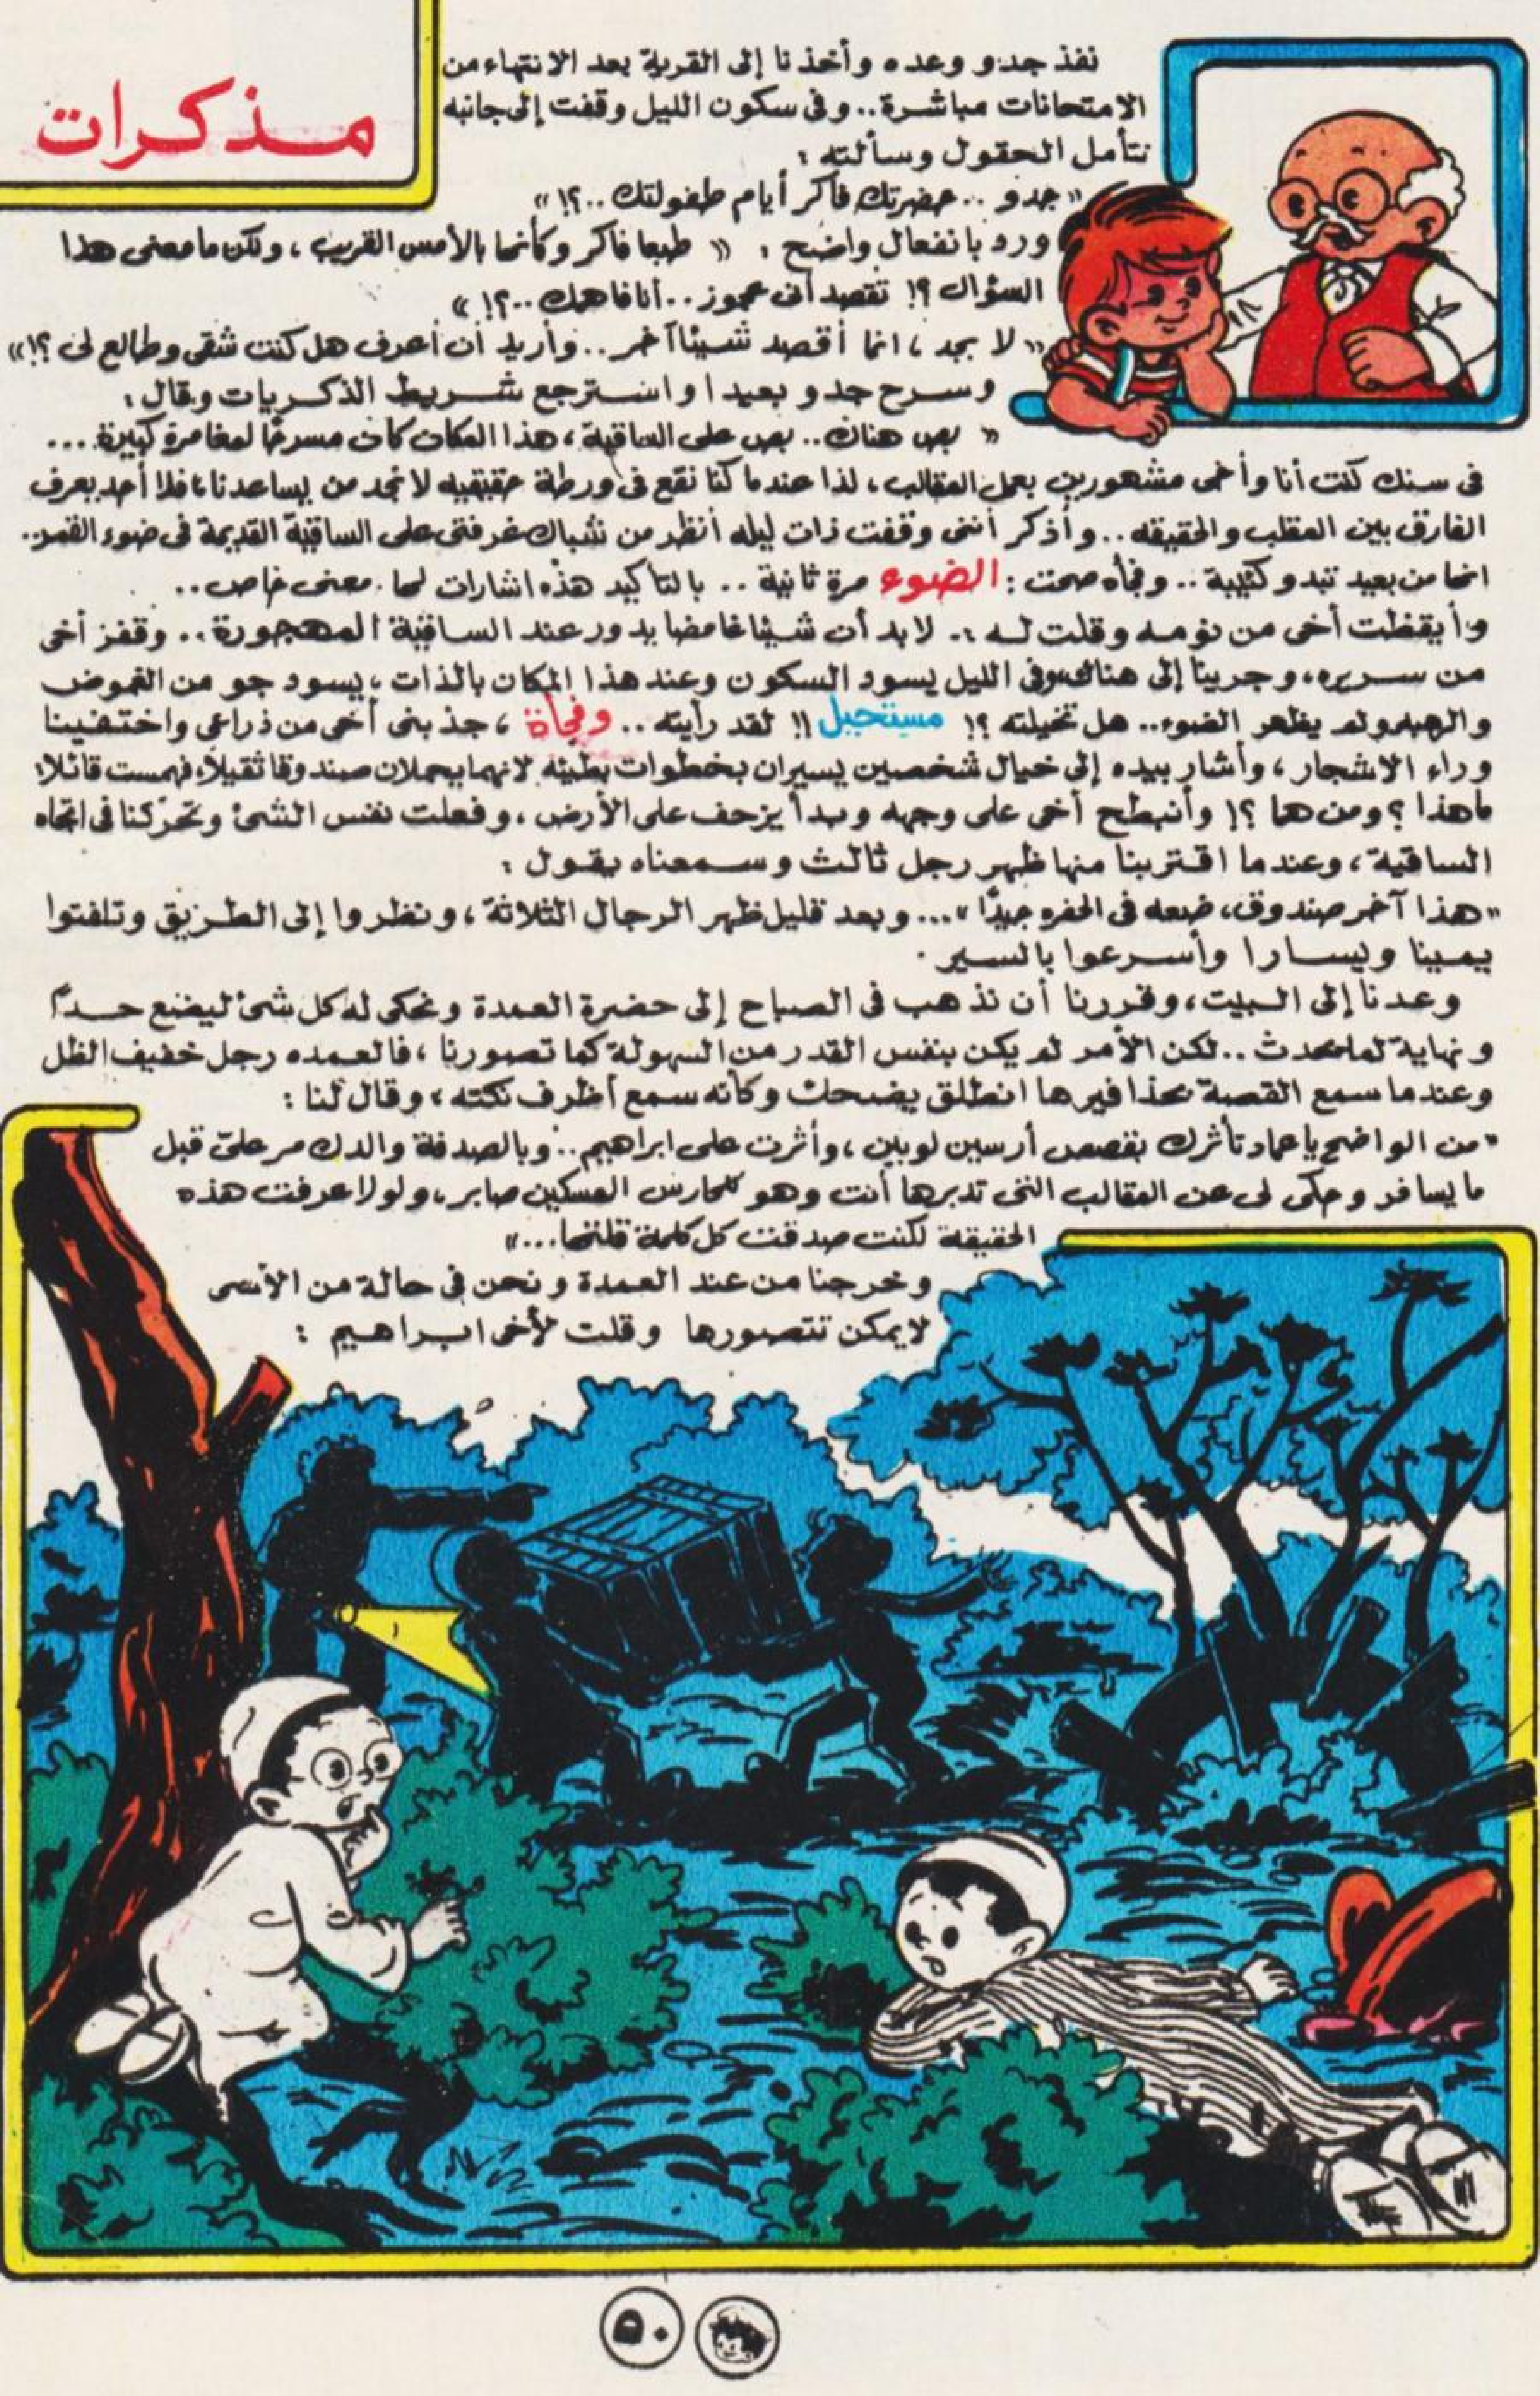 مـذكـرات
نفذ جدو وعده وأخذنا إلى القرية بعد الانتهاء من
الامتحانات مباشرة.. وفى سكون الليل وقفت إلى جانبه
نتأمل الحقول وسألته :
« جدو .. حضرتك فاكر أيام طفولتك ..؟! »
ورد بانفعال واضح : « طبعا فاكر وكأنها بالأمس القريب ، ولكن ما معنى هذا
السؤال ؟! تقصد أنى عجوز .. أنا فاهمك ..؟! »
« لا بجد ، انما أقصد شيئا آخر .. وأريد أن أعرف هل كنت شقى وطالع لى ؟! »
وسرح جدو بعيدا واسترجع شريط الذكريات وقال :
« بص هناك .. بص على الساقية ، هذا المكان كان مسرحًا لمغامرة كبيرة ...
فى سنك كنت أنا وأخى مشهورين بعمل المقالب ، لذا عندما كنا نقع فى ورطة حقيقيه لا نجد من يساعدنا ، فلا أحد يعرف
الفارق بين المقلب والحقيقه .. وأذكر أننى وقفت ذات ليله أنظر من شباك غرفتى على الساقية القديمة فى ضوء القمر.
انها من بعيد تبدو كئيبة .. وفجأه صحت : الضوء مرة ثانية .. بالتاكيد هذه اشارات لها معنى خاص ..
وأيقظت أخى من نومه وقلت له :- لابد أن شيئا غامضا يدور عند الساقية المهجورة .. وقفز أخى
من سريره ، وجرينا إلى هناك وفى الليل يسود السكون وعند هذا المكان بالذات ، يسود جو من الغموض
والرهبه ولم يظهر الضوء .. هل تخيلته ؟! مستحيل !! لقد رأيته .. وفجأة ، جذبنى أخى من ذراعى واختفينا
وراء الاشجار ، وأشار بيده إلى خيال شخصين يسيران بخطوات بطيئه لانهما يحملان صندوقا ثقيلا ، فهمست قائلا :
ماهذا ؟ ومن هما ؟! وأنبطح أخى على وجهه وبدأ يزحف على الأرض ، وفعلت نفس الشئ وتحركنا فى اتجاه
الساقية ، وعندما اقتربنا منها ظهر رجل ثالث وسمعناه يقول :
« هذا آخر صندوق ، ضعه فى الحفره جيدًا » ... وبعد قليل ظهر الرجال الثلاثة ، ونظروا إلى الطريق وتلفتوا
يمينا ويسارا وأسرعوا بالسير .
وعدنا إلى البيت ، وقررنا أن نذهب فى الصباح إلى حضرة العمدة ونحكى له كل شئ ليضع حدًا
ونهاية لما يحدث .. لكن الأمر لم يكن بنفس القدر من السهولة كما تصورنا ، فالعمده رجل خفيف الظل
وعندما سمع القصة بحذافيرها انطلق يضحك وكأنه سمع أظرف نكته ، وقال لنا :
« من الواضح يا عماد تأثرك بقصص أرسين لوبين ، وأثرت على ابراهيم .. وبالصدفة والدك مر علىّ قبل
ما يسافر وحكى لى عن المقالب التى تدبرها أنت وهو للحارس المسكين صابر ، ولولا عرفت هذه
الحقيقة لكنت صدقت كل كلمة قلتها ... »
وخرجنا من عند العمدة ونحن فى حالة من الأسى
لايمكن تتصورها وقلت لأخى ابراهيم :
٥٠